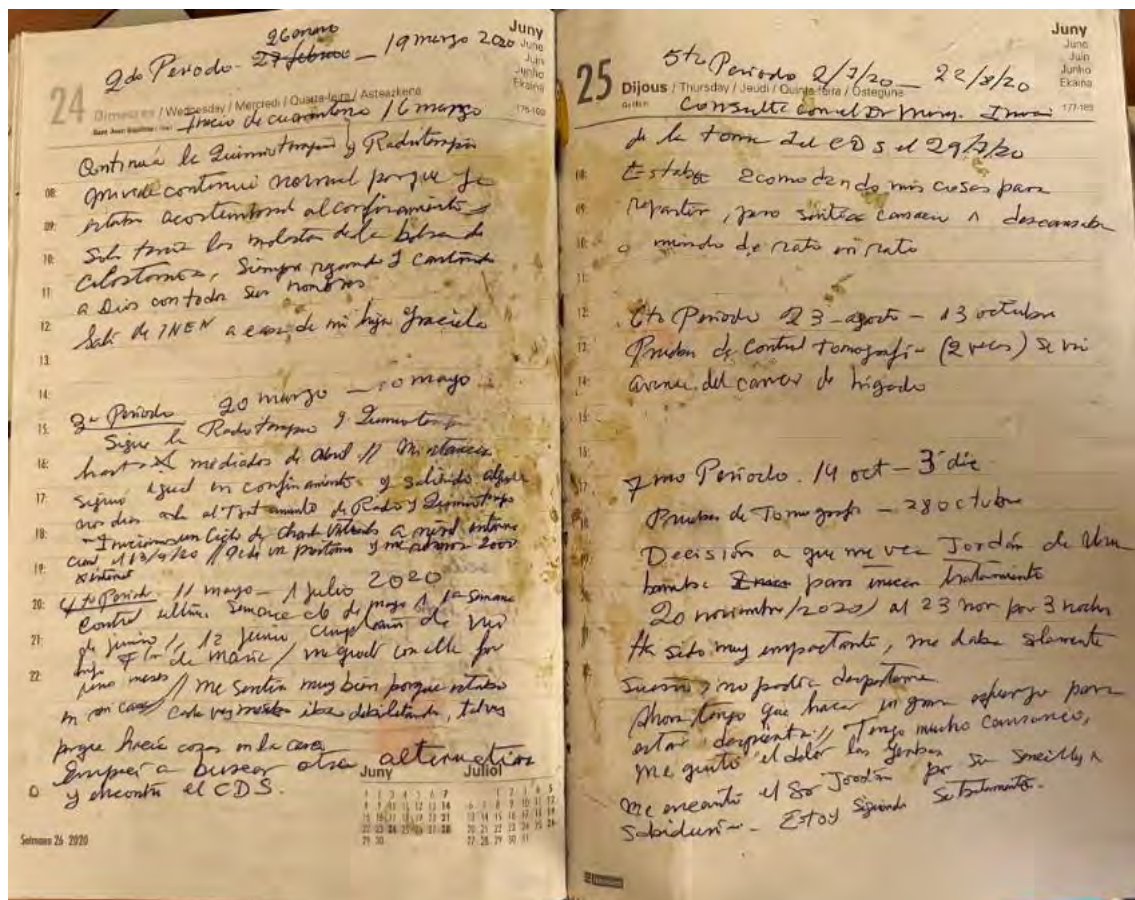 Juny
June
Juin
Junho
Ekaina
176-190
26 enero
2do Periodo - 27 febrero - 19 marzo 2020
24 Dimecres / Wednesday / Mercredi / Quarta-feira / Asteazkena
Inicio de cuarentena 16 marzo
Continuá la Quimioterapia y Radioterapia
mi vida continuó normal porque ya
estaba acostumbrada al confinamiento
Solo tenía las molestias de la bolsa de
colostomía, Siempre rezando y cantando
a Dios con todos sus nombres
Salí de INEN a casa de mi hija Graciela
3er Periodo 20 marzo - 10 mayo
Sigue la Radioterapia y Quimioterapia
hasta mediados de Abril // Mi estancia
siguió igual en confinamiento y saliendo algu
nos días al Tratamiento de Radio y Quimioterapia
Iniciamos un Ciclo de Charlas Virtuales a nivel interna
cional el 13/4/20 //
x internet
4to Periodo 11 mayo - 1 Julio 2020
Control última semana de mayo y 1a semana
de junio //, 12 junio cumpleaños de mi
hija Flor de María / me quedé con ella por
unos meses // me sentía muy bien porque estaba
en mi casa / Cada vez me iba debilitando, talvez
porque hacía cosas en la casa
Empecé a buscar otra alternativa
y encontré el CDS.
08:
09:
10:
11:
12:
13:
14:
15:
16:
17:
18:
19:
20:
21:
22:
Juny Juliol
Setmana 26 2020
Juny
June
Juin
Junho
Ekaina
177-189
5to Periodo 2/7/20 - 22/8/20
25 Dijous / Thursday / Jeudi / Quinta-feira / Osteguna
Consulté con el Dr
de la toma del CDS el 29/7/20
Estaba acomodando mis cosas para
repartir, pero sentía cansancio y descansaba
o miraba de rato en rato
6to Periodo 23 agosto - 13 octubre
Pruebas de Control tomografía (2 veces) se vió
avance del cancer de hígado
7mo Periodo. 14 oct - 3 dic
Pruebas de Tomografía - 28 octubre
Decisión a que me vea Jordán de Uru
bamba para iniciar tratamiento
20 noviembre/2020/ al 23 nov por 3 noches
Ha sido muy impactante, me daba solamente
sueño y no podía despertarme
Ahora tengo que hacer un gran esfuerzo para
estar despierta // Tengo mucho cansancio,
me quitó el dolor las yerbas
Me encantó el Sr Jordán por su sencillez y
Sabiduría - Estoy siguiendo su tratamiento.